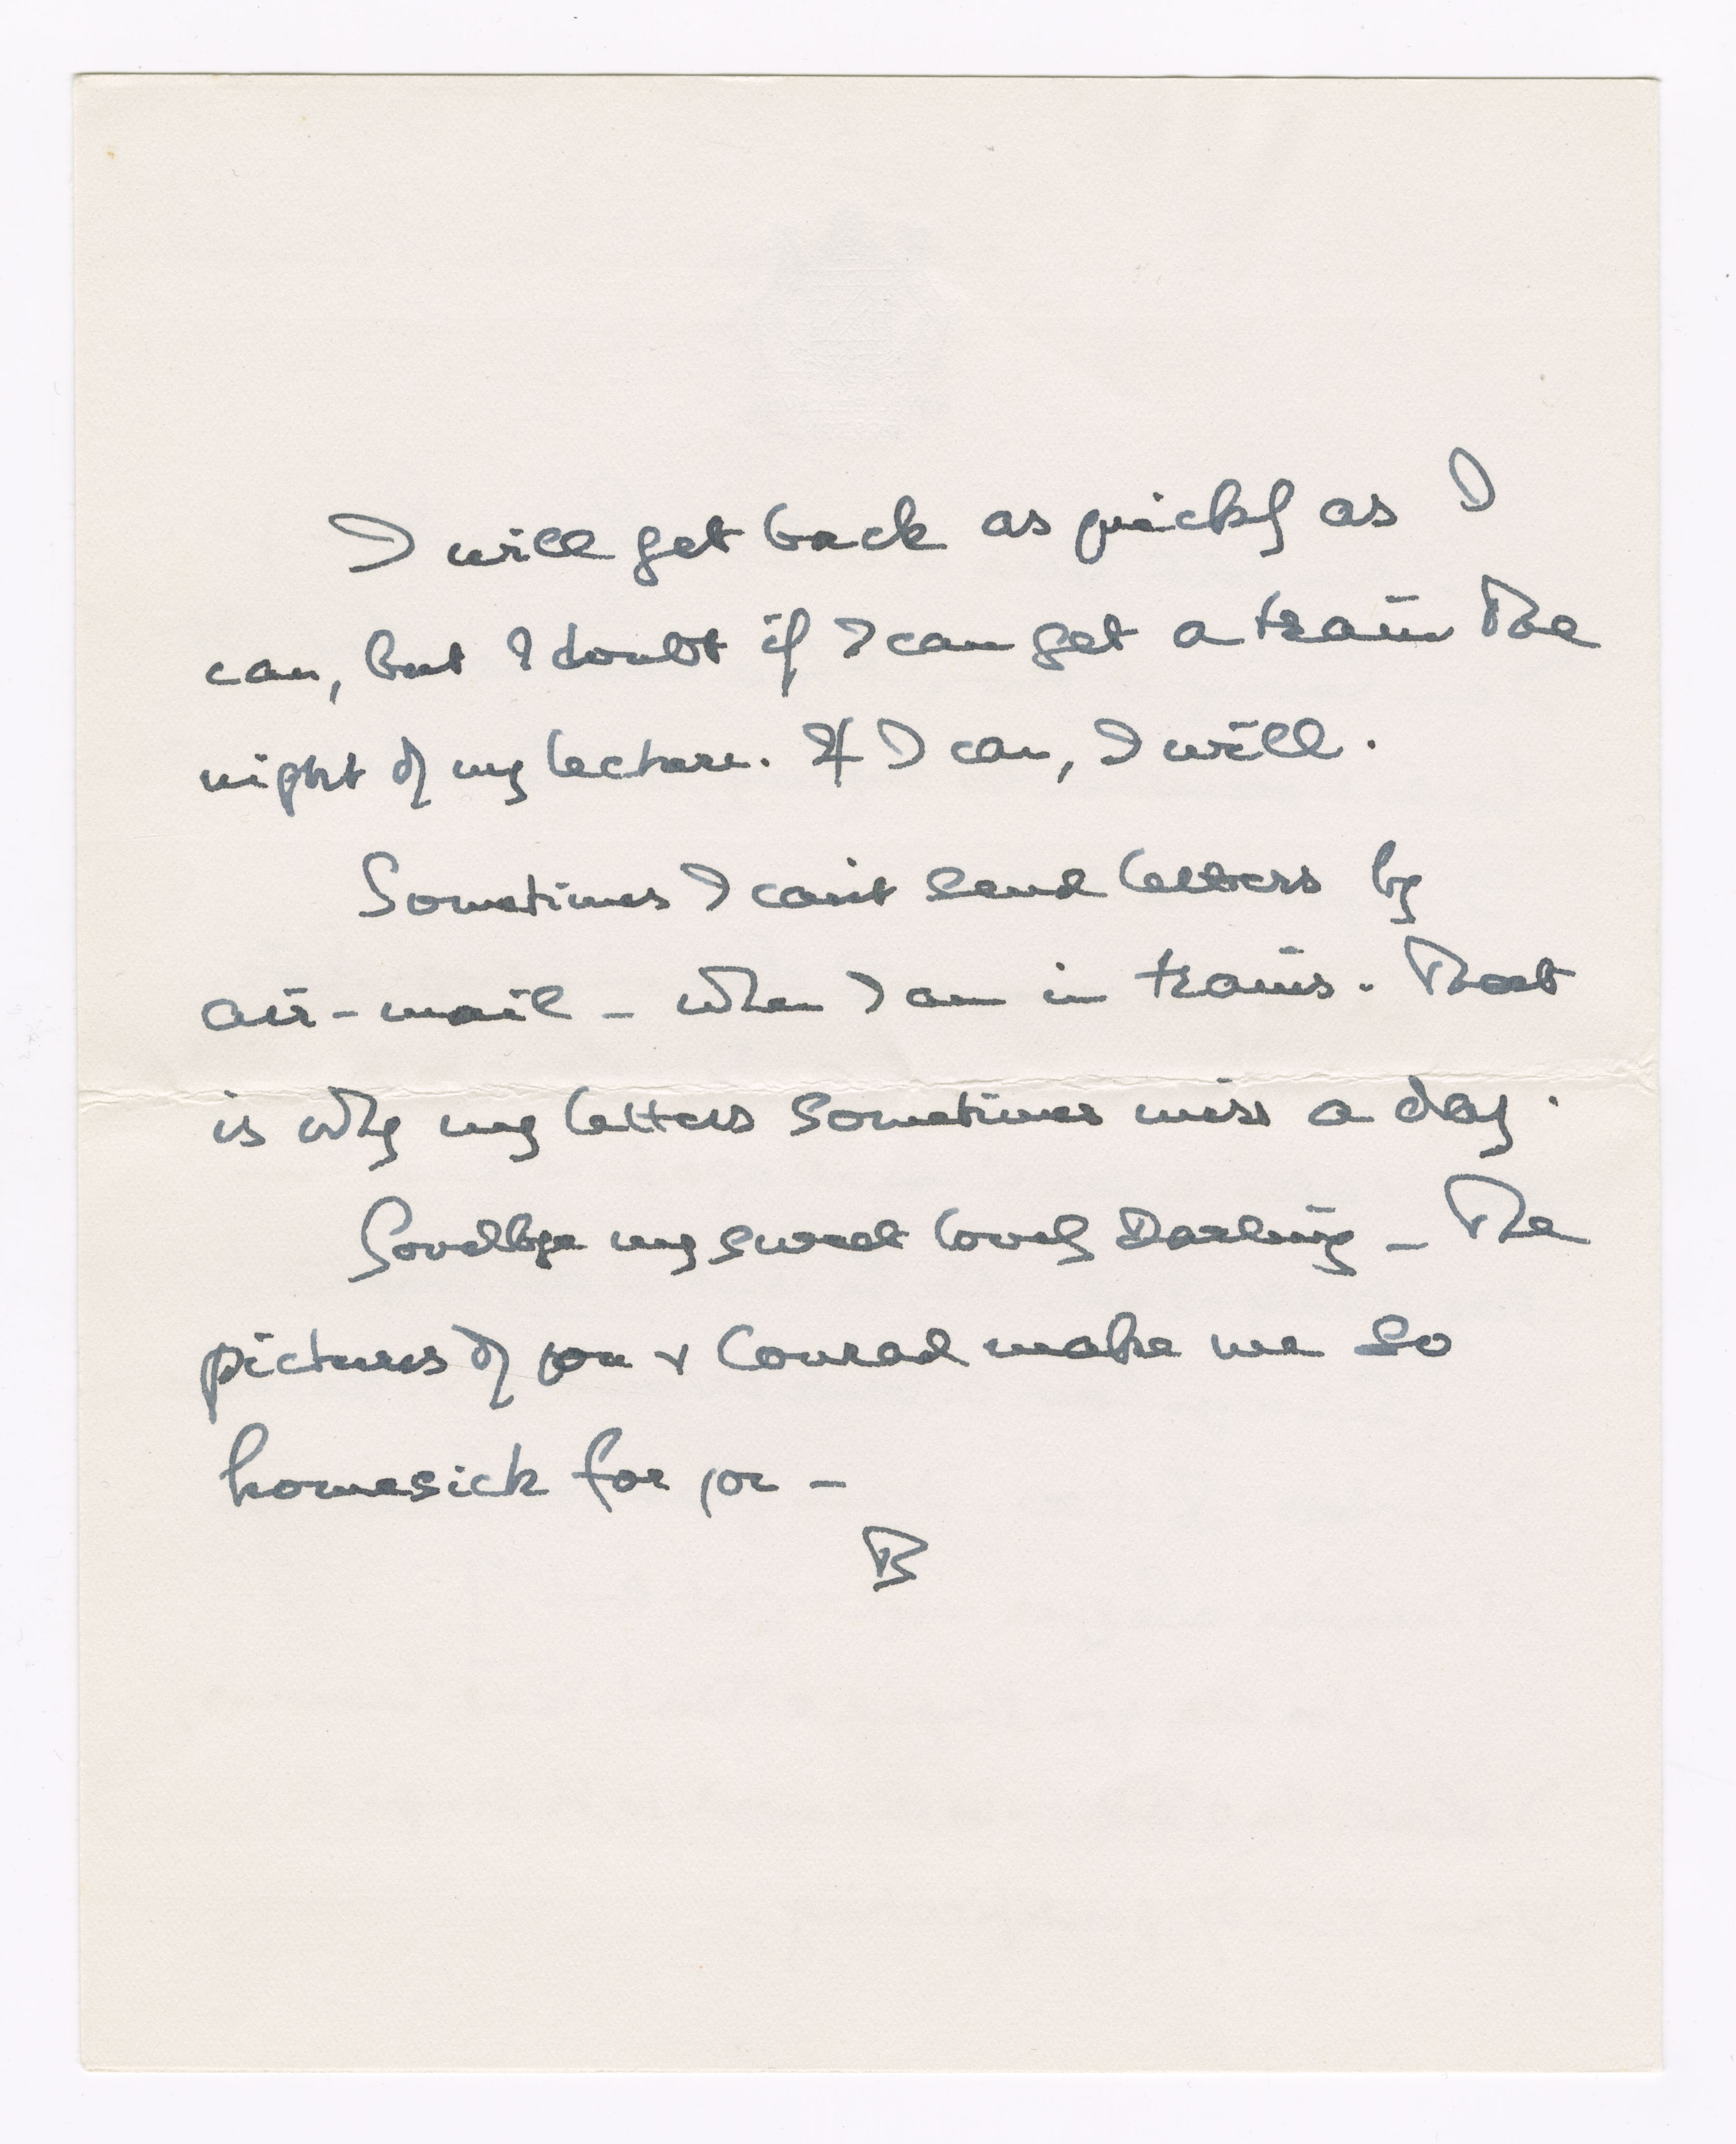 I will get back as quickly as I
can, but I doubt if I can get a train the
night of my lecture. If I can, I will.
Sometimes I can't send letters by
air-mail - when I am in trains. That
is why my letters sometimes miss a day.
Goodbye my sweet lovely Darling - The
pictures of you & Conrad make me so
homesick for you -
B